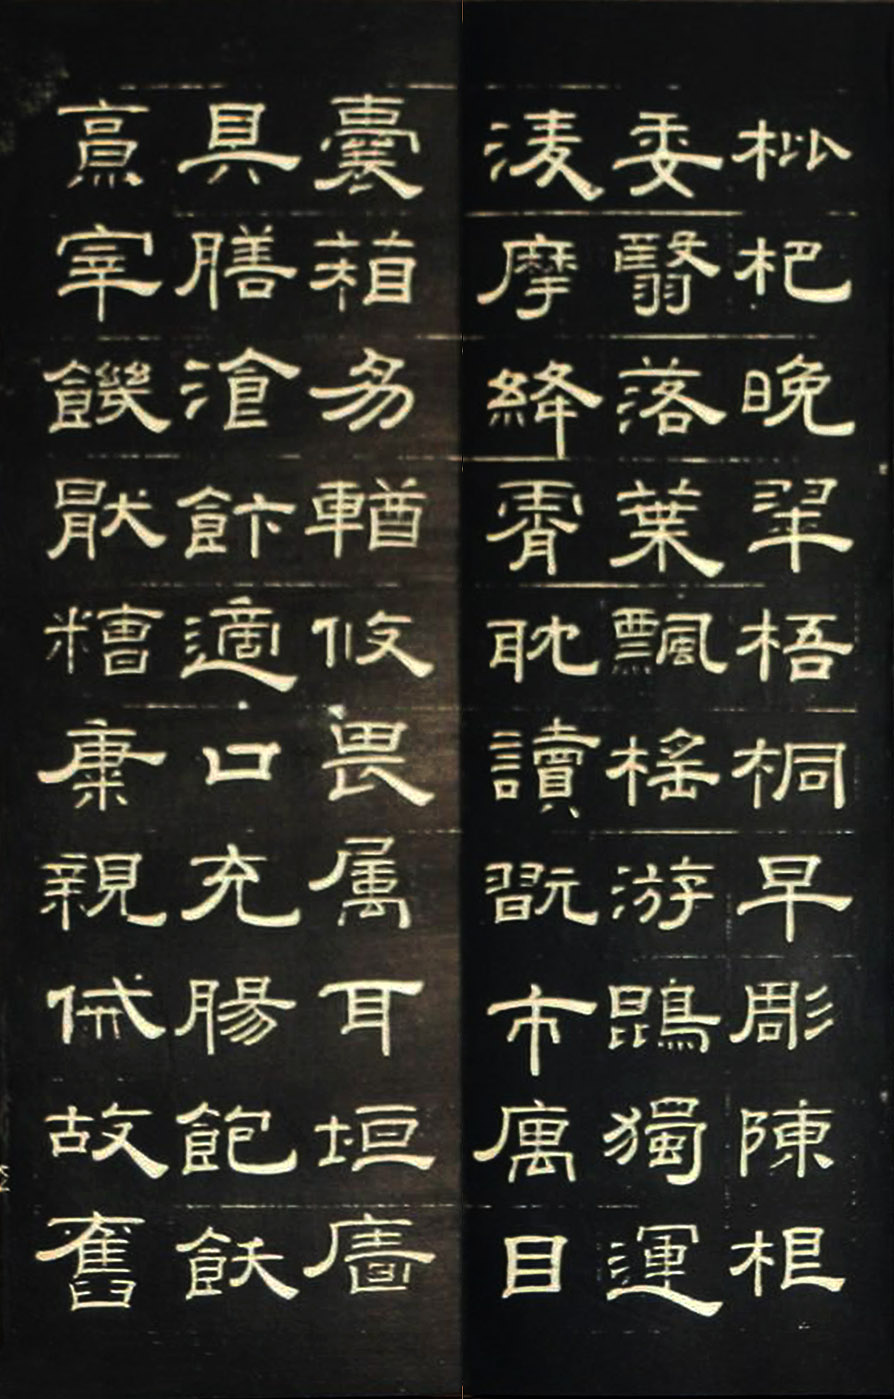 枇杷晚翠梧桐早彫陳根
委翳落葉飄榣游鵾獨運
淩摩絳霄耽讀翫市庽目
囊葙易輶攸畏属耳垣廧
具膳湌飰適口充腸飽飫
烹宰饑猒糟糠親傶故舊